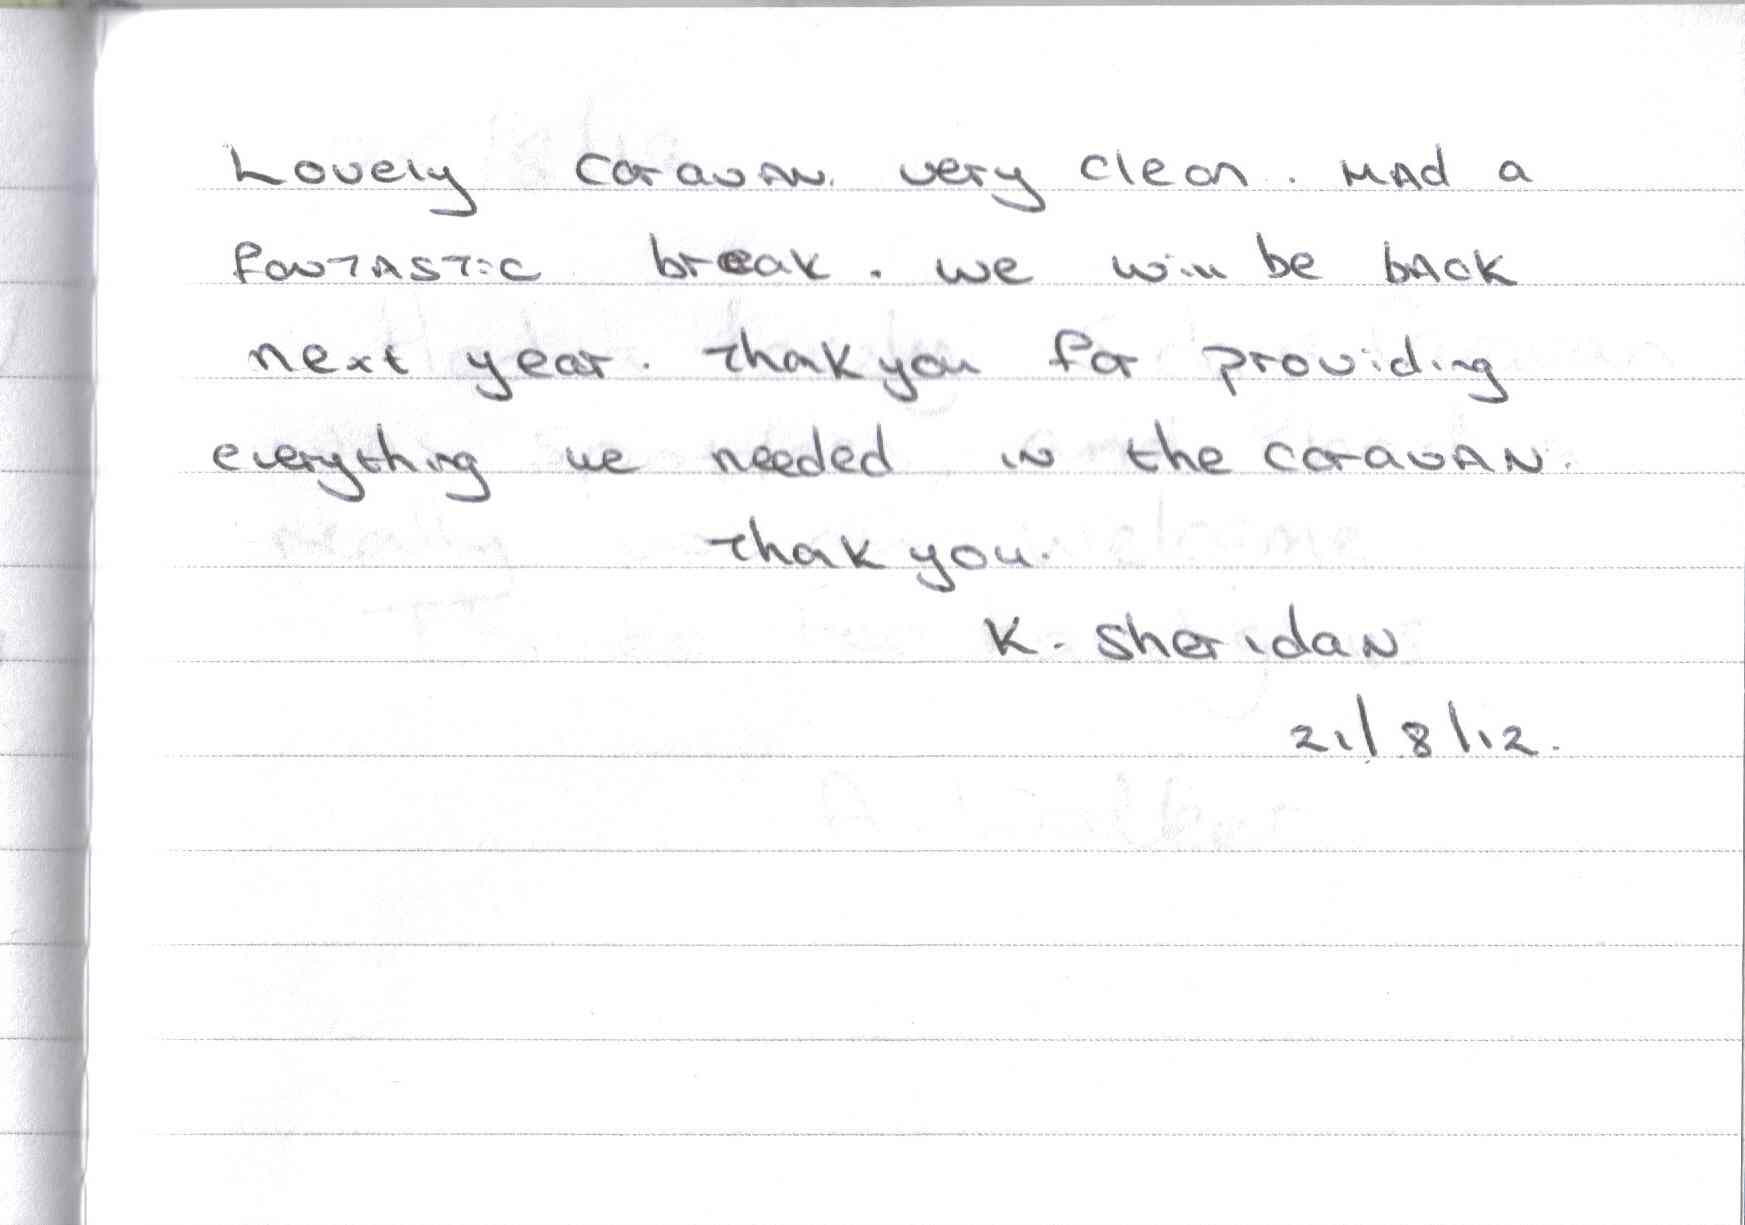 Lovely caravan. very clean. HAd a
fanTASTiC break. we will be bACK
next year. Thak you for providing
everything we needed in the caravAN.
Thak you.
K. SheridaN
21/8/12.